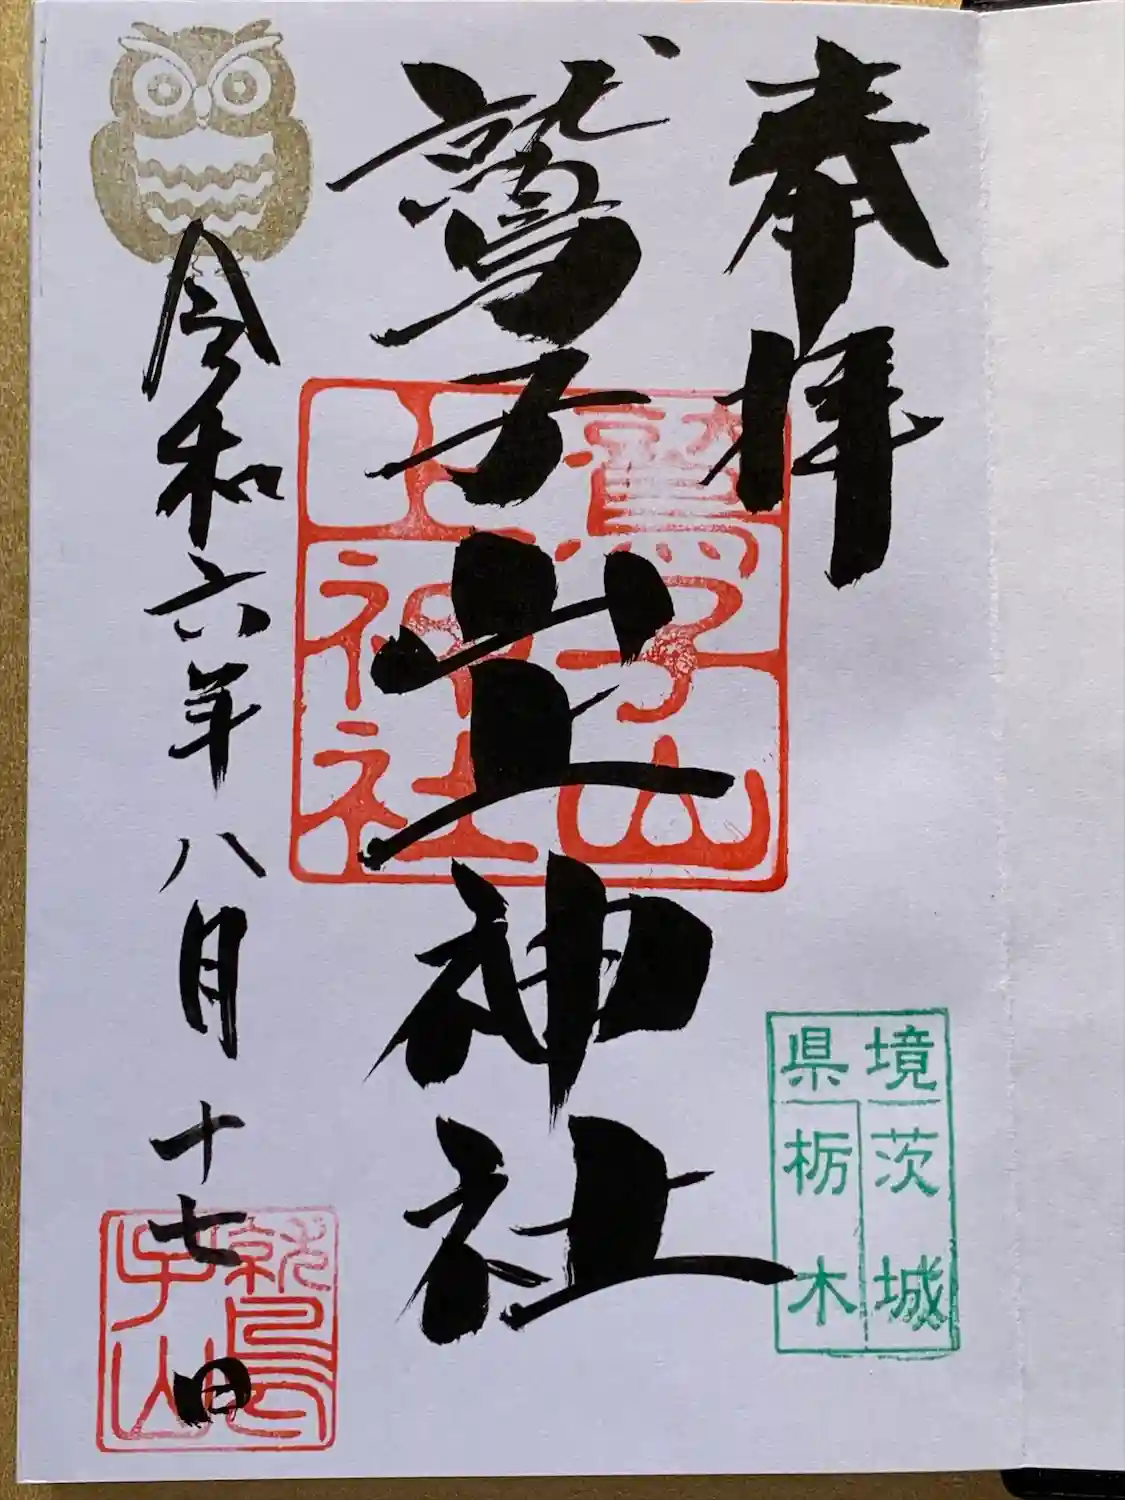 奉拝
鷲子山上神社
令和六年八月十七日
鷲子山
上神社
境 茨城
県 栃木
鷲
子山